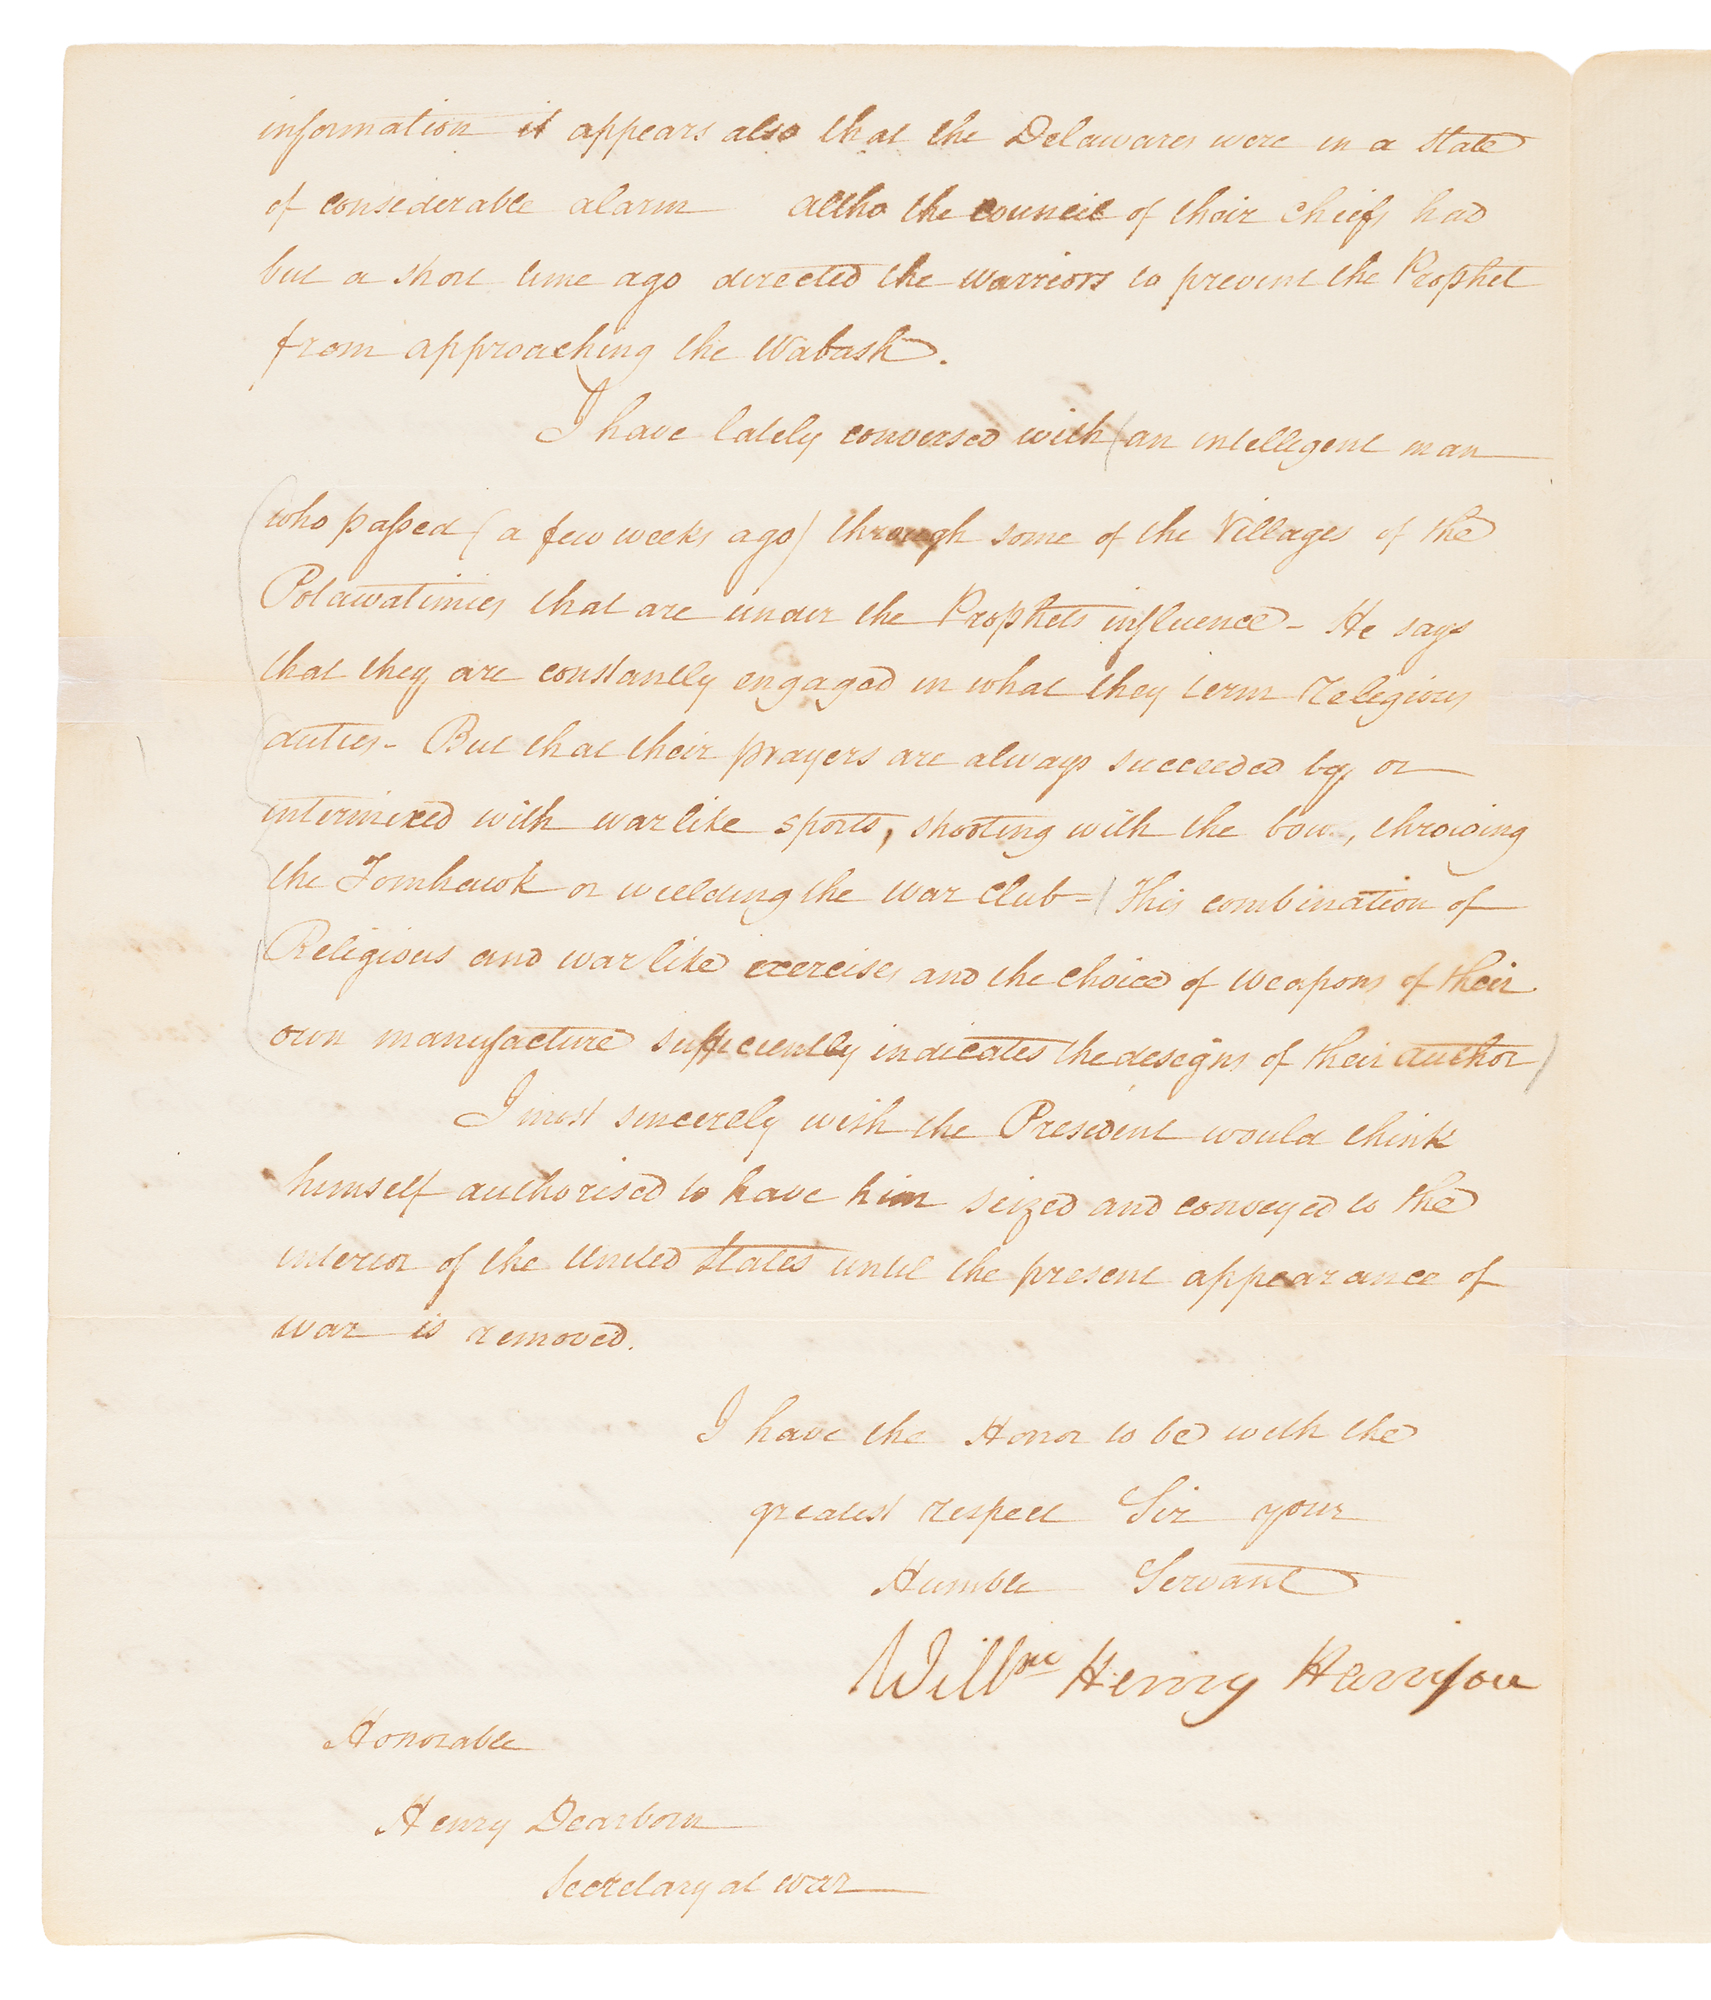 information it appears also that the Delawares were in a state
of considerable alarm altho the council of their Chiefs had
but a short time ago directed the warriors to prevent the Prophet
from approaching the Wabash.
I have lately conversed with (an intelligent man
who passed (a few weeks ago) through some of the Villages of the
Potawatimies that are under the Prophets influence - He says
that they are constantly engaged in what they term religious
duties - But that their prayers are always succeeded by or
intermixed with warlike sports, shooting with the bow, throwing
the Tomhawk or wielding the war Club - ) This combination of
Religious and warlike exercises and the choice of weapons of their
own manufacture sufficiently indicates the designs of their author)
I most sincerely wish the President would think
himself authorised to have him seized and conveyed to the
interior of the United States until the present appearance of
war is removed.
I have the Honor to be with the
greatest respect Sir your
Humble Servant
Willm Henry Harrison
Honorable
Henry Dearborn
Secretary at war